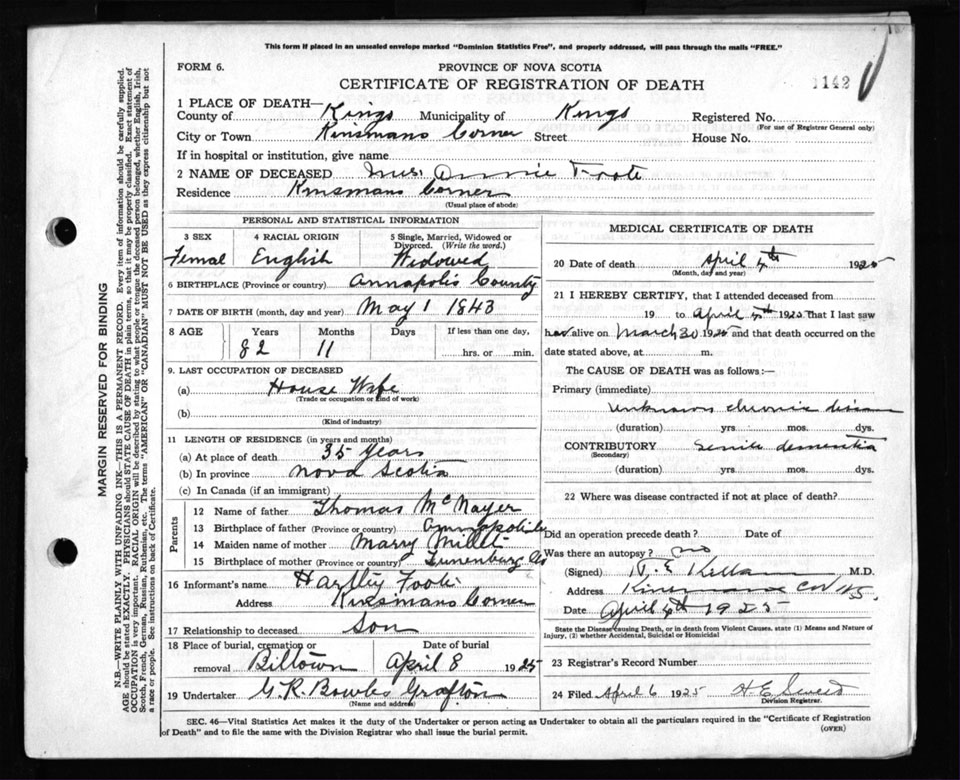 This form if placed in an unsealed envelope marked "Dominion Statistics Free", and properly addressed, will pass through the mails "FREE."
FORM 6.
PROVINCE OF NOVA SCOTIA
CERTIFICATE OF REGISTRATION OF DEATH
1142
1 PLACE OF DEATH—
County of Kings Municipality of Kings Registered No.
(For use of Registrar General only)
City or Town Kinsmans Corner Street House No.
If in hospital or institution, give name
2 NAME OF DECEASED Mrs. Annie Foote
Residence Kinsmans Corner
(Usual place of abode)
PERSONAL AND STATISTICAL INFORMATION
3 SEX 4 RACIAL ORIGIN 5 Single, Married, Widowed or Divorced. (Write the word.)
Femal English Widowed
6 BIRTHPLACE (Province or country) Annapolis County
7 DATE OF BIRTH (month, day and year) May 1 1843
8 AGE Years Months Days If less than one day,
82 11 hrs. or min.
9. LAST OCCUPATION OF DECEASED
(a) House Wife
(Trade or occupation or kind of work)
(b)
(Kind of industry)
11 LENGTH OF RESIDENCE (in years and months)
(a) At place of death 35 Years
(b) In province Nova Scotia
(c) In Canada (if an immigrant)
Parents
12 Name of father Thomas McNayer
13 Birthplace of father (Province or country) Annapolis Co
14 Maiden name of mother Marry Millet
15 Birthplace of mother (Province or country) Lunenburg Co
16 Informant's name Hartley Foote
Address Kinsmans Corner
17 Relationship to deceased Son
18 Place of burial, cremation or removal Billtown April 8 1925
19 Undertaker G. R. Bowles Grafton
(Name and address)
MEDICAL CERTIFICATE OF DEATH
20 Date of death April 4th 1925
(Month, day and year)
21 I HEREBY CERTIFY, that I attended deceased from
19 to April 4th 1925 that I last saw
her alive on March 30 1925 and that death occurred on the
date stated above, at m.
The CAUSE OF DEATH was as follows:—
Primary (immediate)
unknown chronic disease
(duration) yrs. mos. dys.
CONTRIBUTORY senile dementia
(Secondary)
(duration) yrs. mos. dys.
22 Where was disease contracted if not at place of death?
Did an operation precede death? Date of
Was there an autopsy? no
(Signed) M.D.
Address
Date April 4th 1925
State the Disease causing Death, or in death from Violent Causes, state (1) Means and Nature of
Injury, (2) whether Accidental, Suicidal or Homicidal
23 Registrar's Record Number
24 Filed April 6 1925 H E
Division Registrar.
SEC. 46—Vital Statistics Act makes it the duty of the Undertaker or person acting as Undertaker to obtain all the particulars required in the "Certificate of Registration
of Death" and to file the same with the Division Registrar who shall issue the burial permit.
(OVER)
MARGIN RESERVED FOR BINDING
N.B.—WRITE PLAINLY WITH UNFADING INK—THIS IS A PERMANENT RECORD. Every item of information should be carefully supplied.
AGE should be stated EXACTLY. PHYSICIANS should STATE CAUSE OF DEATH in plain terms, so that it may be properly classified. Exact statement of
OCCUPATION is very important. RACIAL ORIGIN will be described by stating to what people or tongue the deceased person belonged, whether English, Irish,
Scotch, French, German, Russian, Ruthenian, etc. The terms "AMERICAN" OR "CANADIAN" MUST NOT BE USED as they express citizenship but not
a race or people. See instructions on back of Certificate.